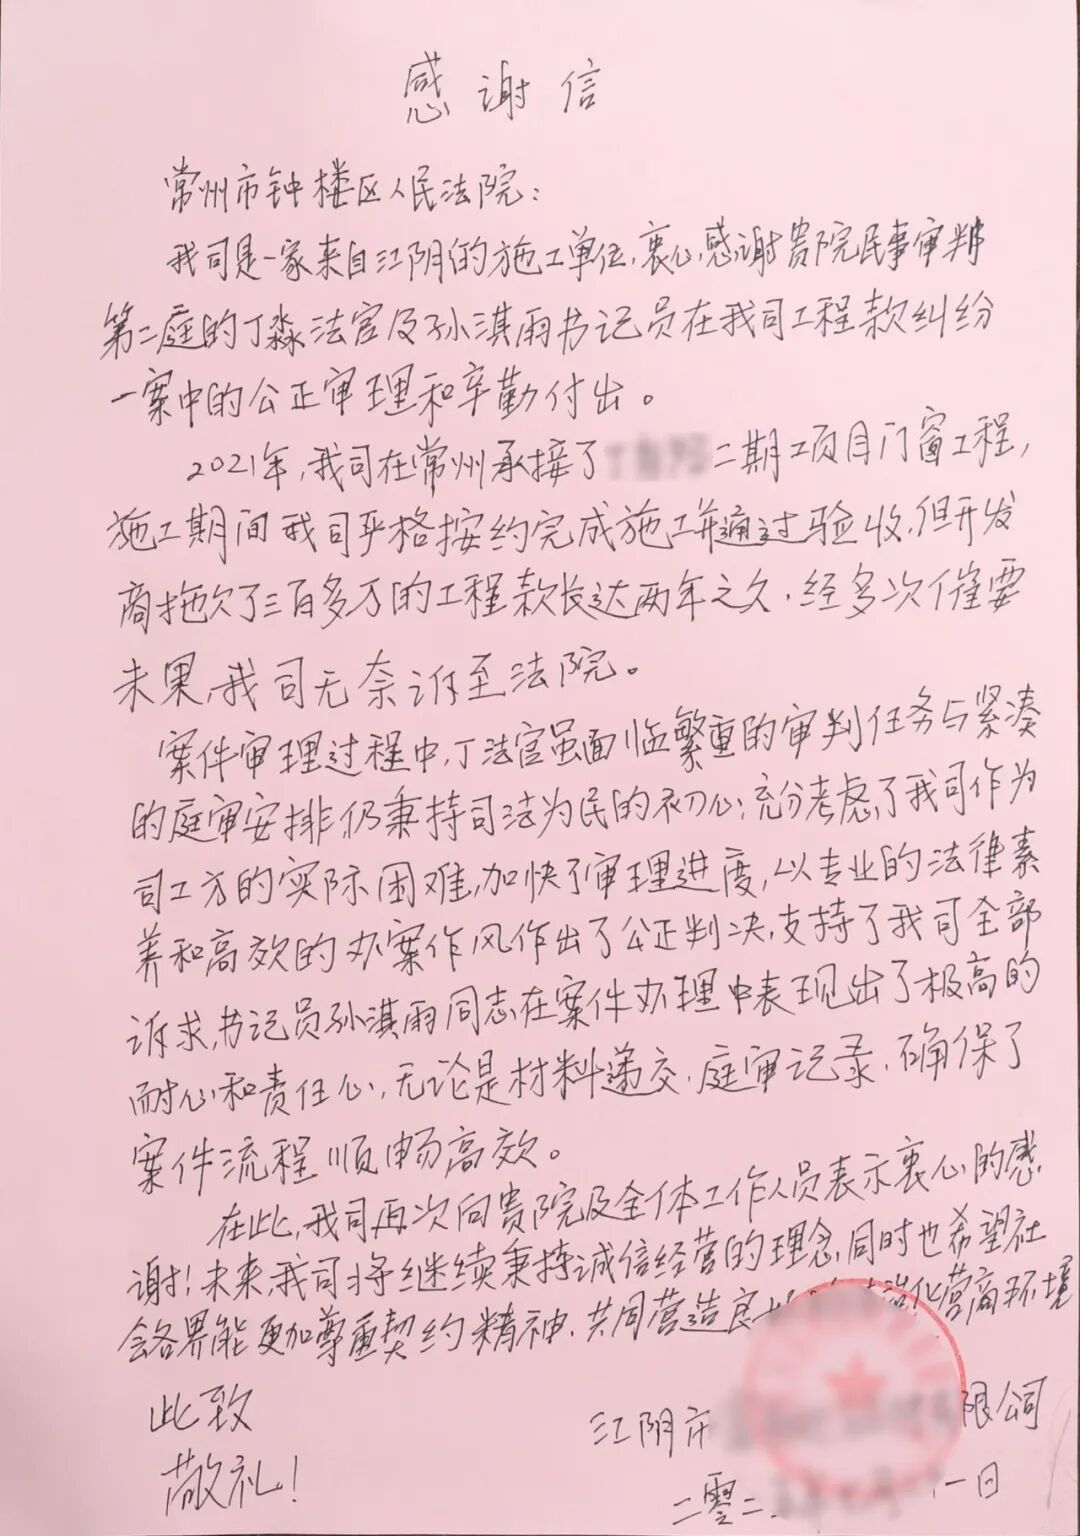 感谢信
常州市钟楼区人民法院：
我司是一家来自江阴的施工单位，衷心感谢贵院民事审判
第二庭的丁淼法官及孙淇雨书记员在我司工程款纠纷
一案中的公正审理和辛勤付出。
2021年，我司在常州承接了二期工项目门窗工程，
施工期间我司严格按约完成施工并通过验收，但开发
商拖欠了三百多万的工程款长达两年之久，经多次催要
未果，我司无奈诉至法院。
案件审理过程中，丁法官虽面临繁重的审判任务与紧凑
的庭审安排仍秉持司法为民的初心；充分考虑了我司作为
司工方的实际困难，加快了审理进度，以专业的法律素
养和高效的办案作风作出了公正判决，支持了我司全部
诉求，书记员孙淇雨同志在案件办理中表现出了极高的
耐心和责任心，无论是材料递交、庭审记录，确保了
案件流程顺畅高效。
在此，我司再次向贵院及全体工作人员表示衷心的感
谢！未来，我司将继续秉持诚信经营的理念，同时也希望社
会各界能更加尊重契约精神，共同营造良化营商环境
此致
敬礼！
江阴市限公司
二零二一日